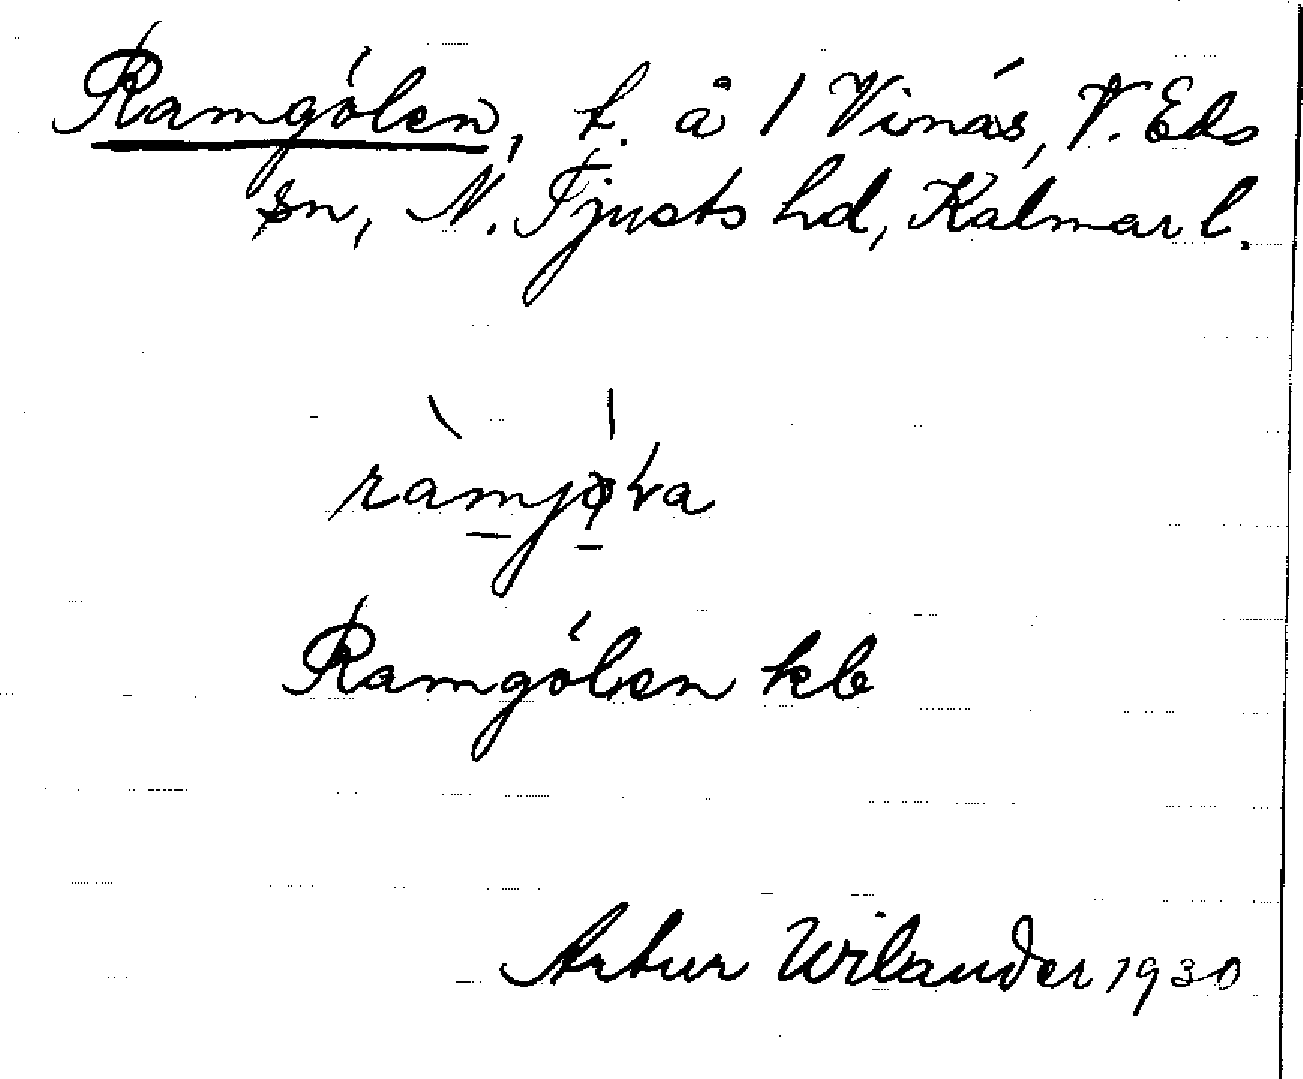 Ramgólen, t. å 1 Vinás, V. Eds
sn, N. Tjusts hd, Kalmar l.
Ramgólen kb
Artur Wilander 1930